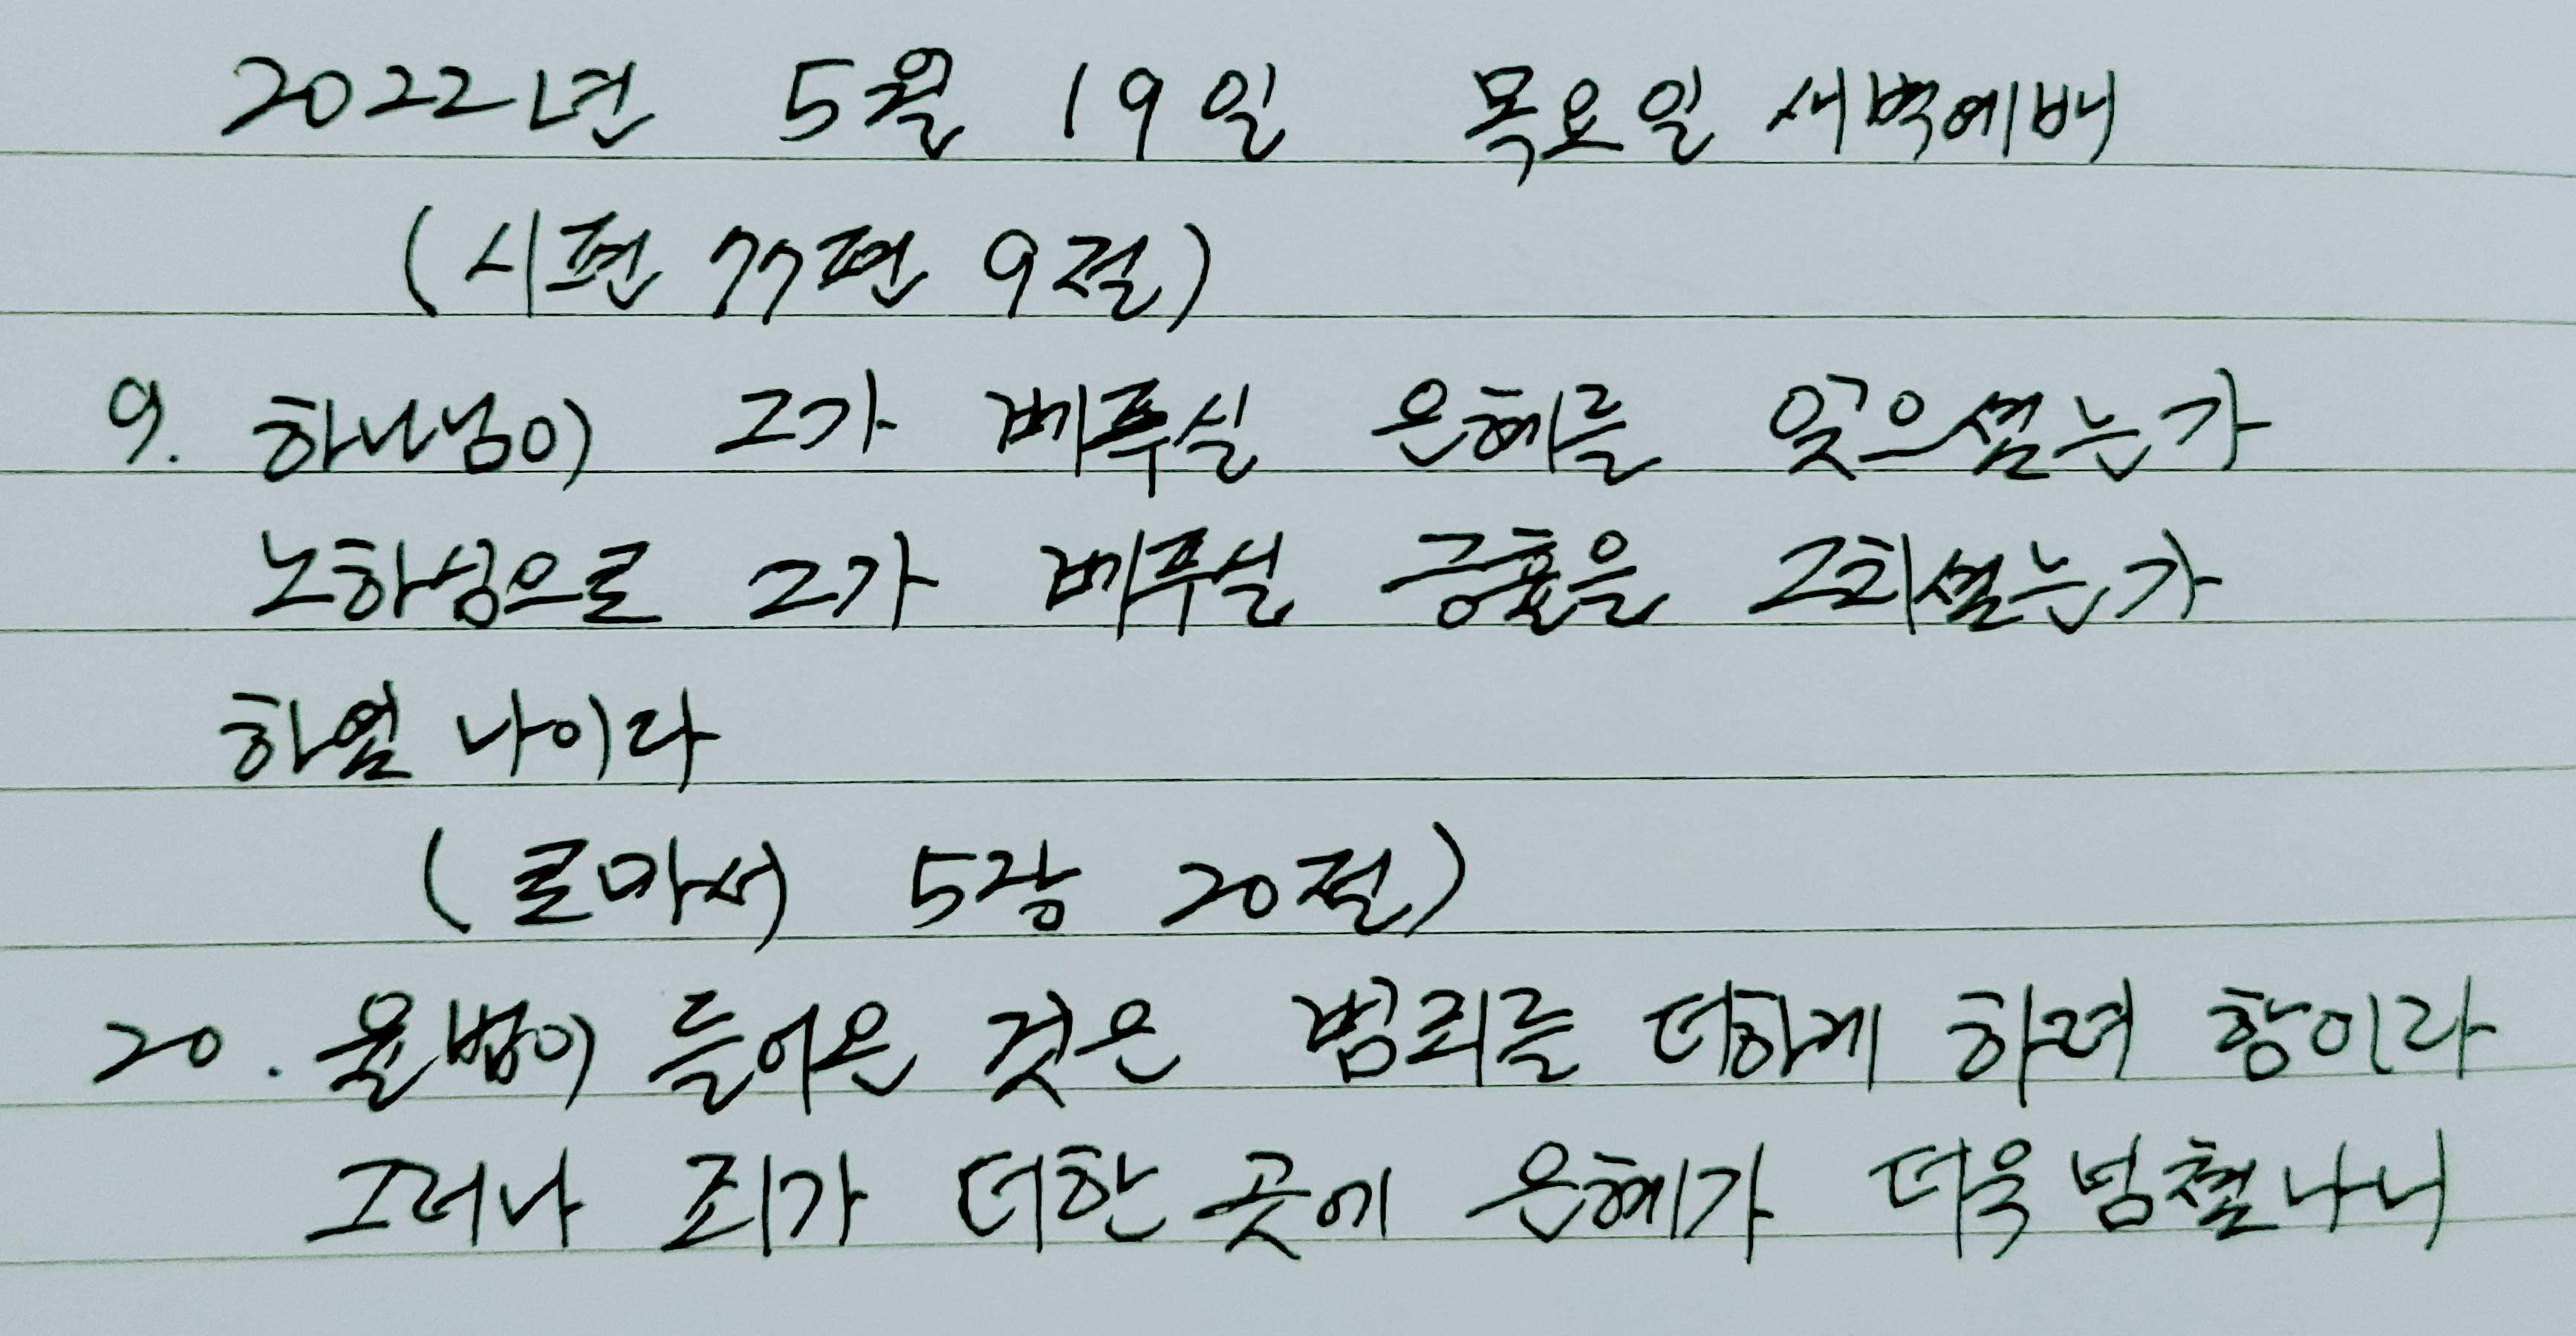 2022년 5월 19일 목요일 새벽예배
(시편 77편 9절)
9. 하나님이 그가 베푸실 은혜를 잊으셨는가
노하심으로 그가 베푸실 긍휼을 그치셨는가
하였나이다
(로마서 5장 20절)
20. 율법이 들어온 것은 범죄를 더하게 하려 함이라
그러나 죄가 더한 곳에 은혜가 더욱 넘쳤나니